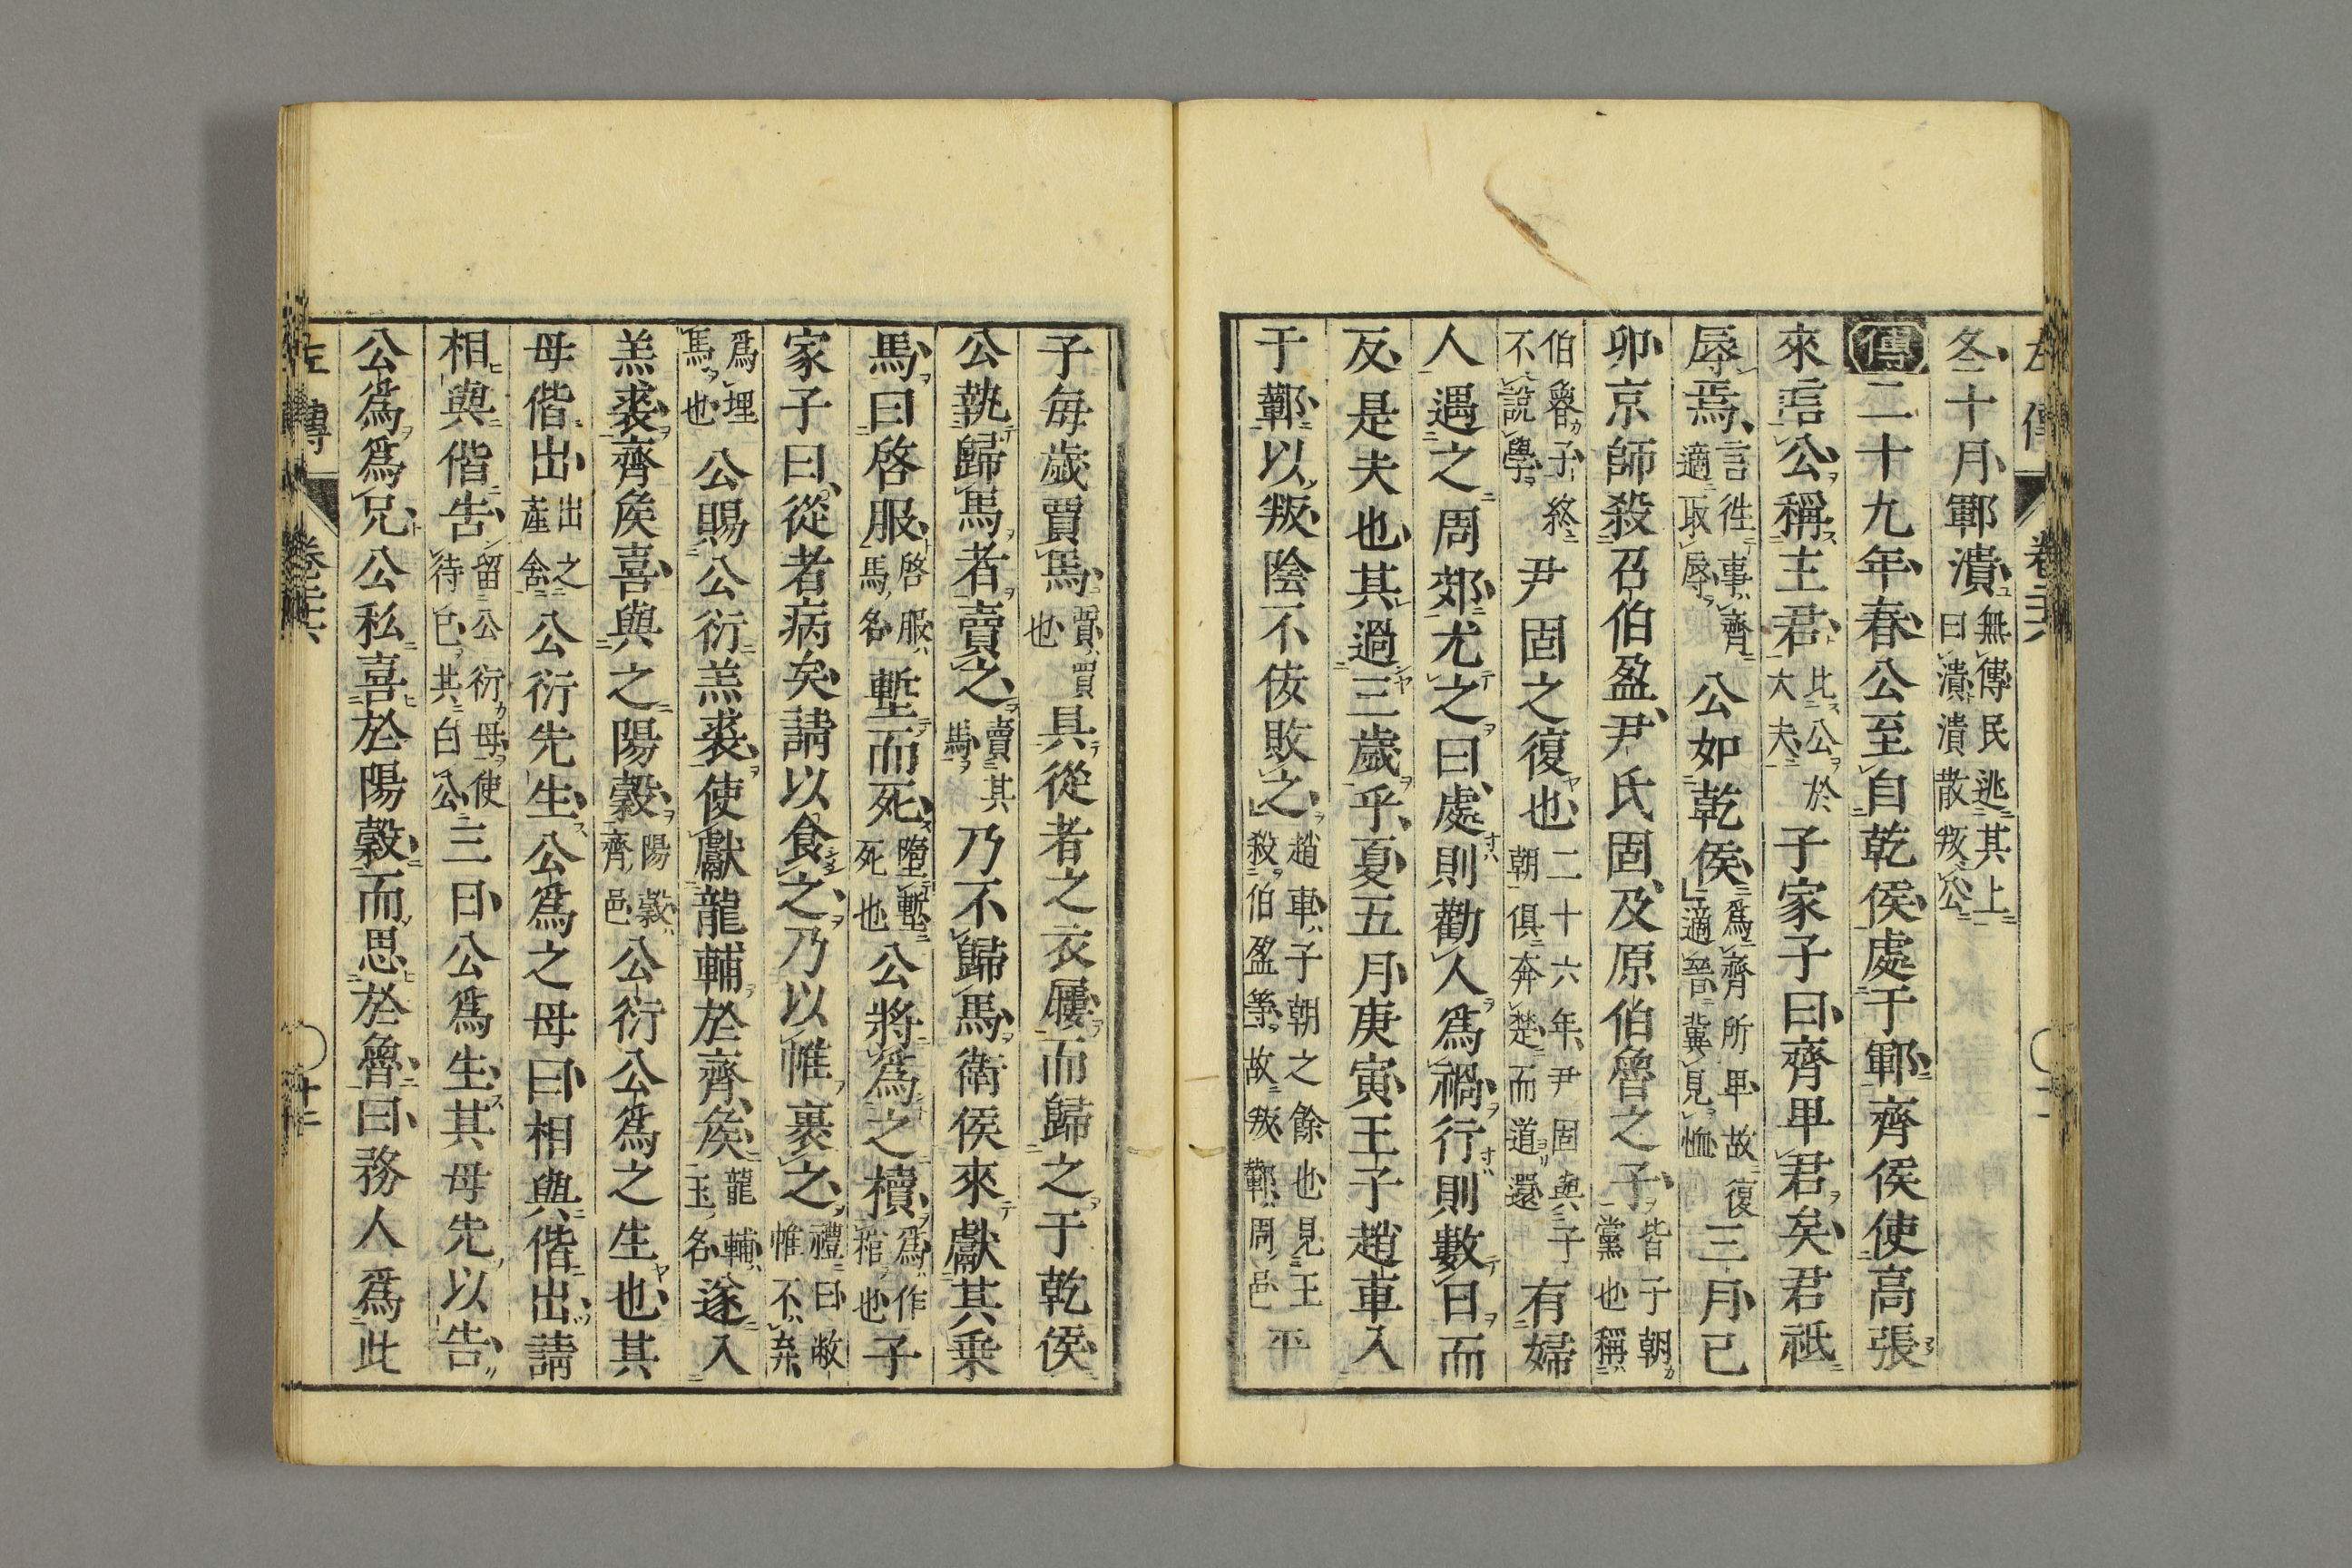 左傳 卷二十六
冬十月鄆潰無傳民逃其上曰潰潰散叛公
傳二十九年春公至自乾侯處于鄆齊侯使高張
來唁公稱主君比公於大夫子家子曰齊卑君矣君祗
辱焉言往事齊適取辱公如乾侯爲齊所卑故復適晉冀見恤三月己
卯京師殺召伯盈尹氏固及原伯魯之子皆子朝黨也稱
伯魯子終不說學尹固之復也二十六年尹固與子朝俱奔楚而道還有婦
人遇之周郊尤之曰處則勸人爲禍行則數日而
反是夫也其過三歲乎夏五月庚寅王子趙車入
于鄻以叛陰不佞敗之趙車子朝之餘也見王殺伯盈等故叛鄻周邑平
子毎歲賈馬賈買也具從者之衣屨而歸之于乾侯
公執歸馬者賣之賣其馬乃不歸馬衛侯來獻其乗
馬曰啓服啓服馬名塹而死墮塹死也公將爲之櫝爲作棺也子
家子曰從者病矣請以食之乃以帷裹之禮曰敝帷不弃
爲埋馬也公賜公衍羔裘使獻龍輔於齊矦龍輔玉名遂入
羔裘齊矦喜與之陽穀陽穀齊邑公衍公爲之生也其
母偕出出之產舍公衍先生公爲之母曰相與偕出請
相與偕告留公衍母使待己共白公三日公爲生其母先以告
公爲爲兄公私喜於陽穀而思於魯曰務人爲此
左傳 卷二十六 十二